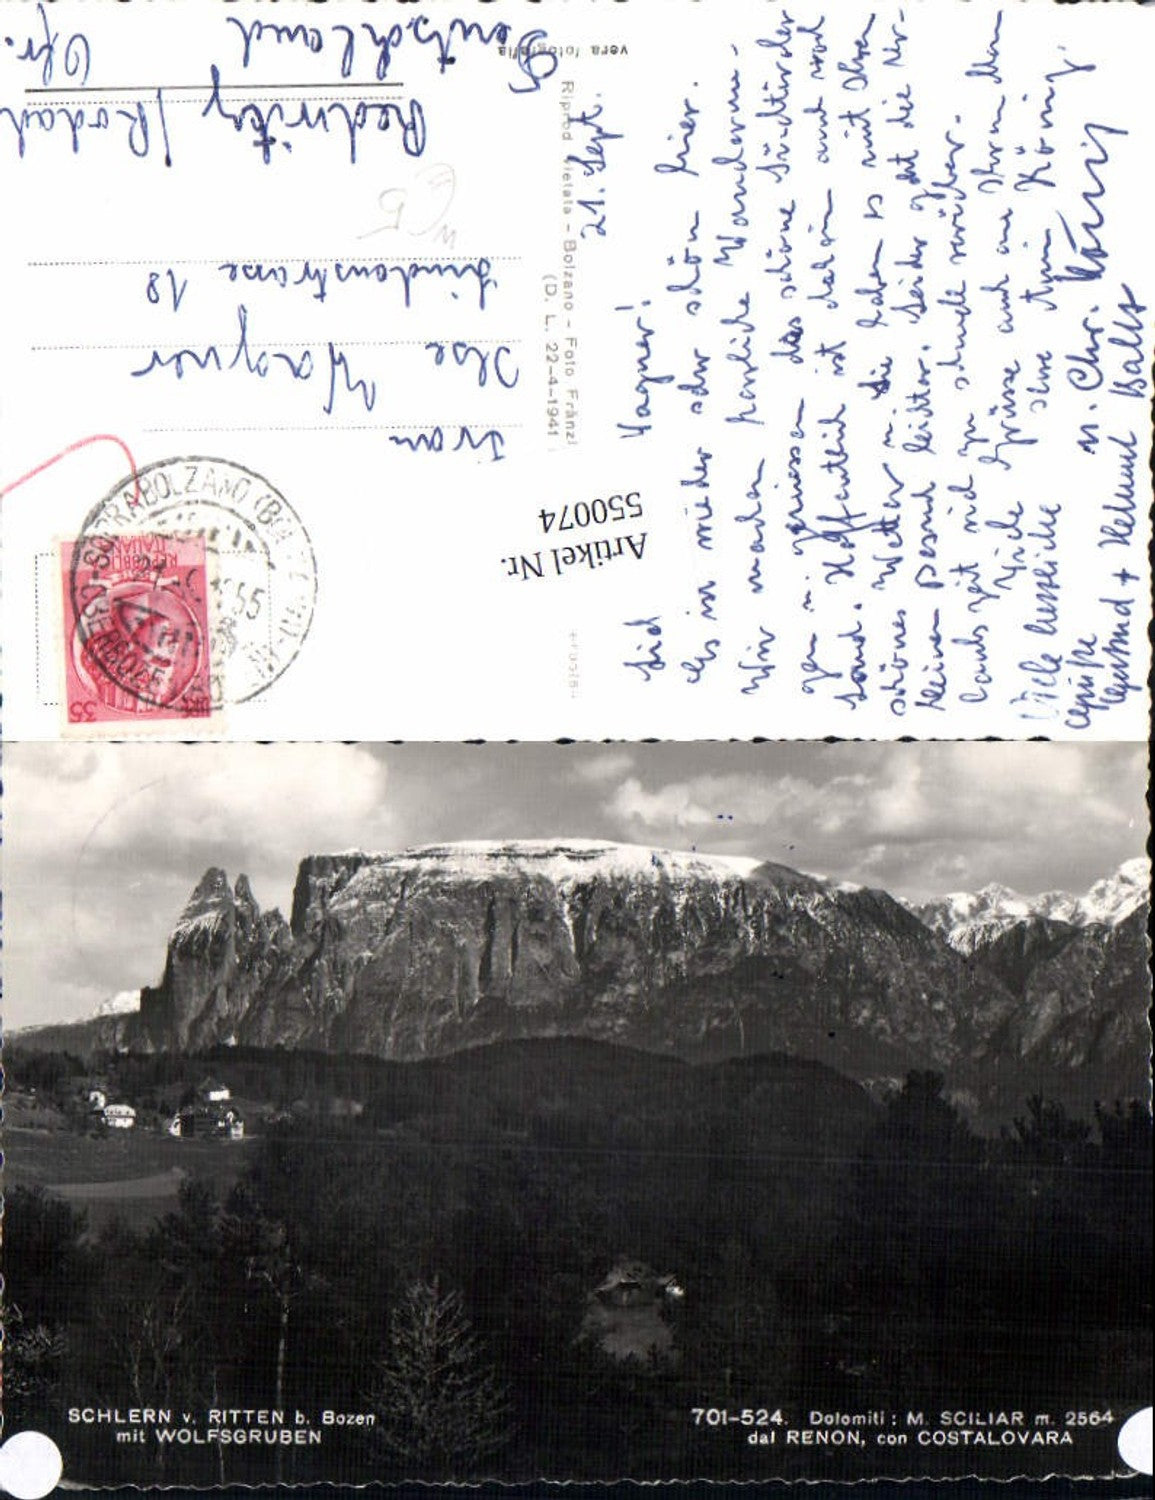 vera fotografia
Riprod. vietata - Bolzano - Foto Fränzl
(D. L. 22-4-1941
Artikel Nr.
550074
SOPRABOLZANO (BOLZANO)
OBERBOZEN
REPUBBLICA
ITALIANA
35
Frau
Ilse Wagner
Lindenstrasse 18
Redwitz / Rodach
Ofr.
Deutschland
21. Sept.
Wagner!
Es ist wieder sehr schön hier.
Wir machen herrliche Wanderun-
gen u. geniessen das schöne Südtiroler
Land. Hoffentlich ist daheim auch
schönes Wetter u. Sie haben es mit Ihrem
kleinen leichter. Leider geht die Ur-
laubszeit viel zu schnell vorüber.
Viele Grüsse auch an Ihren Mann
Ihre König.
Viele herzliche
Grüße
u. Chr. König
Gertrud + Helmut
SCHLERN v. RITTEN b. Bozen
mit WOLFSGRUBEN
701-524. Dolomiti: M. SCILIAR m. 2564
dal RENON, con COSTALOVARA